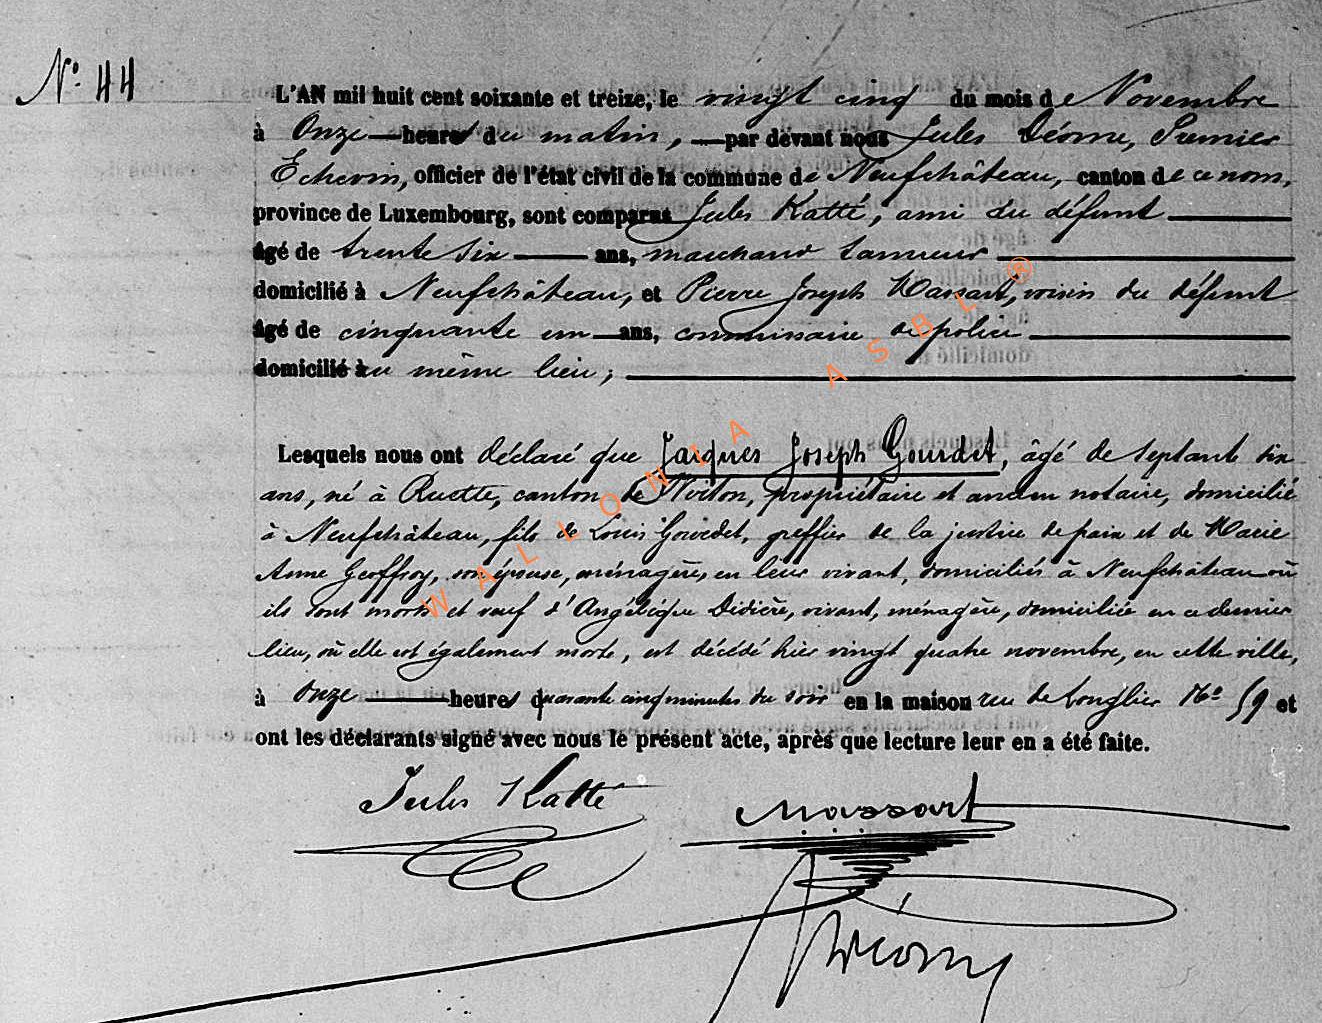 N° 44
L'AN mil huit cent soixante et treize, le vingt cinq du mois de Novembre
à Onze heures du matin, par devant nous Jules Déome, Premier
Echevin, officier de l'état civil de la commune de Neufchâteau, canton de ce nom,
province de Luxembourg, sont comparus Jules Katté, ami du défunt
âgé de trente six ans, marchand tanneur
domicilié à Neufchâteau, et Pierre Joseph Massart, voisin du défunt
âgé de cinquante un ans, commissaire de police
domicilié au même lieu;
Lesquels nous ont déclaré que Jacques Joseph Gourdet, âgé de septante six
ans, né à Ruette, canton de Virton, propriétaire et ancien notaire, domicilié
à Neufchâteau, fils de Louis Gourdet, greffier de la justice de paix et de Marie
Anne Geoffroy, son épouse, ménagère, en leur vivant, domiciliés à Neufchâteau où
ils sont morts et veuf d'Angélique Didière, vivant, ménagère, domiciliée en ce dernier
lieu, où elle est également morte, est décédé hier vingt quatre novembre, en cette ville,
à Onze heures quarante cinq minutes du soir en la maison rue de Longlier N° 59 et
ont les déclarants signé avec nous le présent acte, après que lecture leur en a été faite.
Jules Katté Massart
Déome
WALLONIA ASBL ®